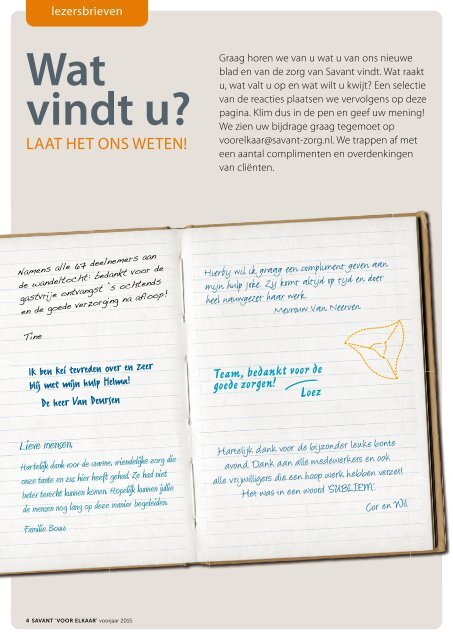 lezersbrieven
Wat
vindt u?
LAAT HET ONS WETEN!
Graag horen we van u wat u van ons nieuwe
blad en van de zorg van Savant vindt. Wat raakt
u, wat valt u op en wat wilt u kwijt? Een selectie
van de reacties plaatsen we vervolgens op deze
pagina. Klim dus in de pen en geef uw mening!
We zien uw bijdrage graag tegemoet op
voorelkaar@savant-zorg.nl. We trappen af met
een aantal complimenten en overdenkingen
van cliënten.
Namens alle 67 deelnemers aan
de wandeltocht: bedankt voor de
gastvrije ontvangst 's ochtends
en de goede verzorging na afloop!
Tine
Ik ben kei tevreden over en zeer
blij met mijn hulp Helma!
De heer Van Deursen
Lieve mensen,
Hartelijk dank voor de warme, vriendelijke zorg die
onze tante en zus hier heeft gehad. Ze had niet
beter terecht kunnen komen. Hopelijk kunnen jullie
de mensen nog lang op deze manier begeleiden.
Familie Bouw
Hierbij wil ik graag een compliment geven aan
mijn hulp Joke. Zij komt altijd op tijd en doet
heel nauwgezet haar werk.
Mevrouw Van Neerven
Team, bedankt voor de
goede zorgen!
Loez
Hartelijk dank voor de bijzonder leuke bonte
avond. Dank aan alle medewerkers en ook
alle vrijwilligers die een hoop werk hebben verzet!
Het was in een woord 'SUBLIEM'.
Cor en Wil
4 SAVANT 'VOOR ELKAAR' voorjaar 2015